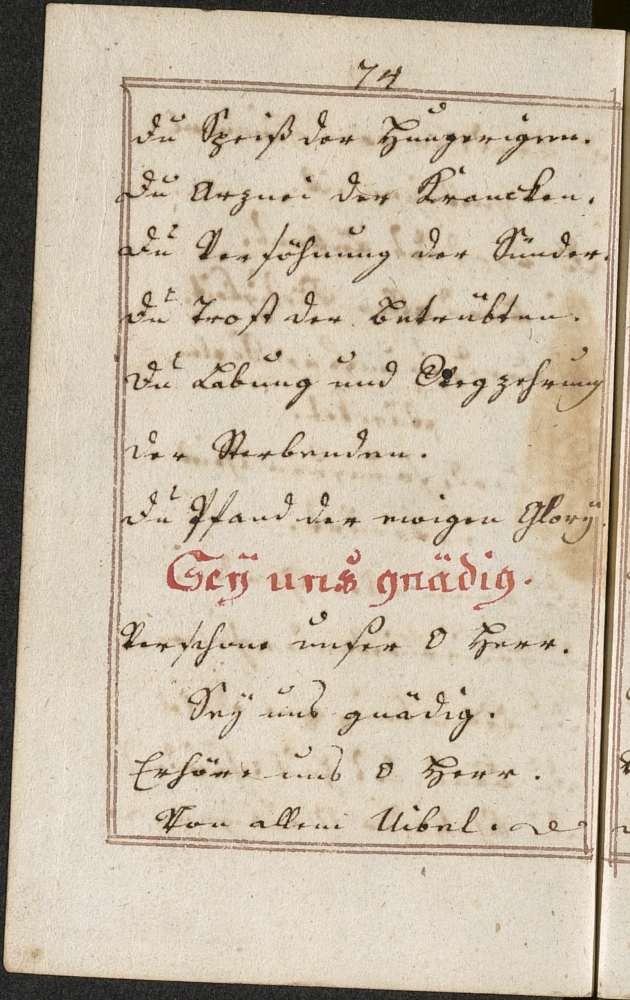 74
Du Speiß der Hungerigen.
Du Arznei der Krancken.
Du Versöhnung der Sünder.
Du Trost der Betrübten.
Du Labung und Wegzehrung
der Sterbenden.
Du Pfand der ewigen Glory.
Seÿ uns gnädig.
Verschone unser O Herr.
Seÿ uns gnädig.
Erhöre uns O Herr.
Von allem Uibel.